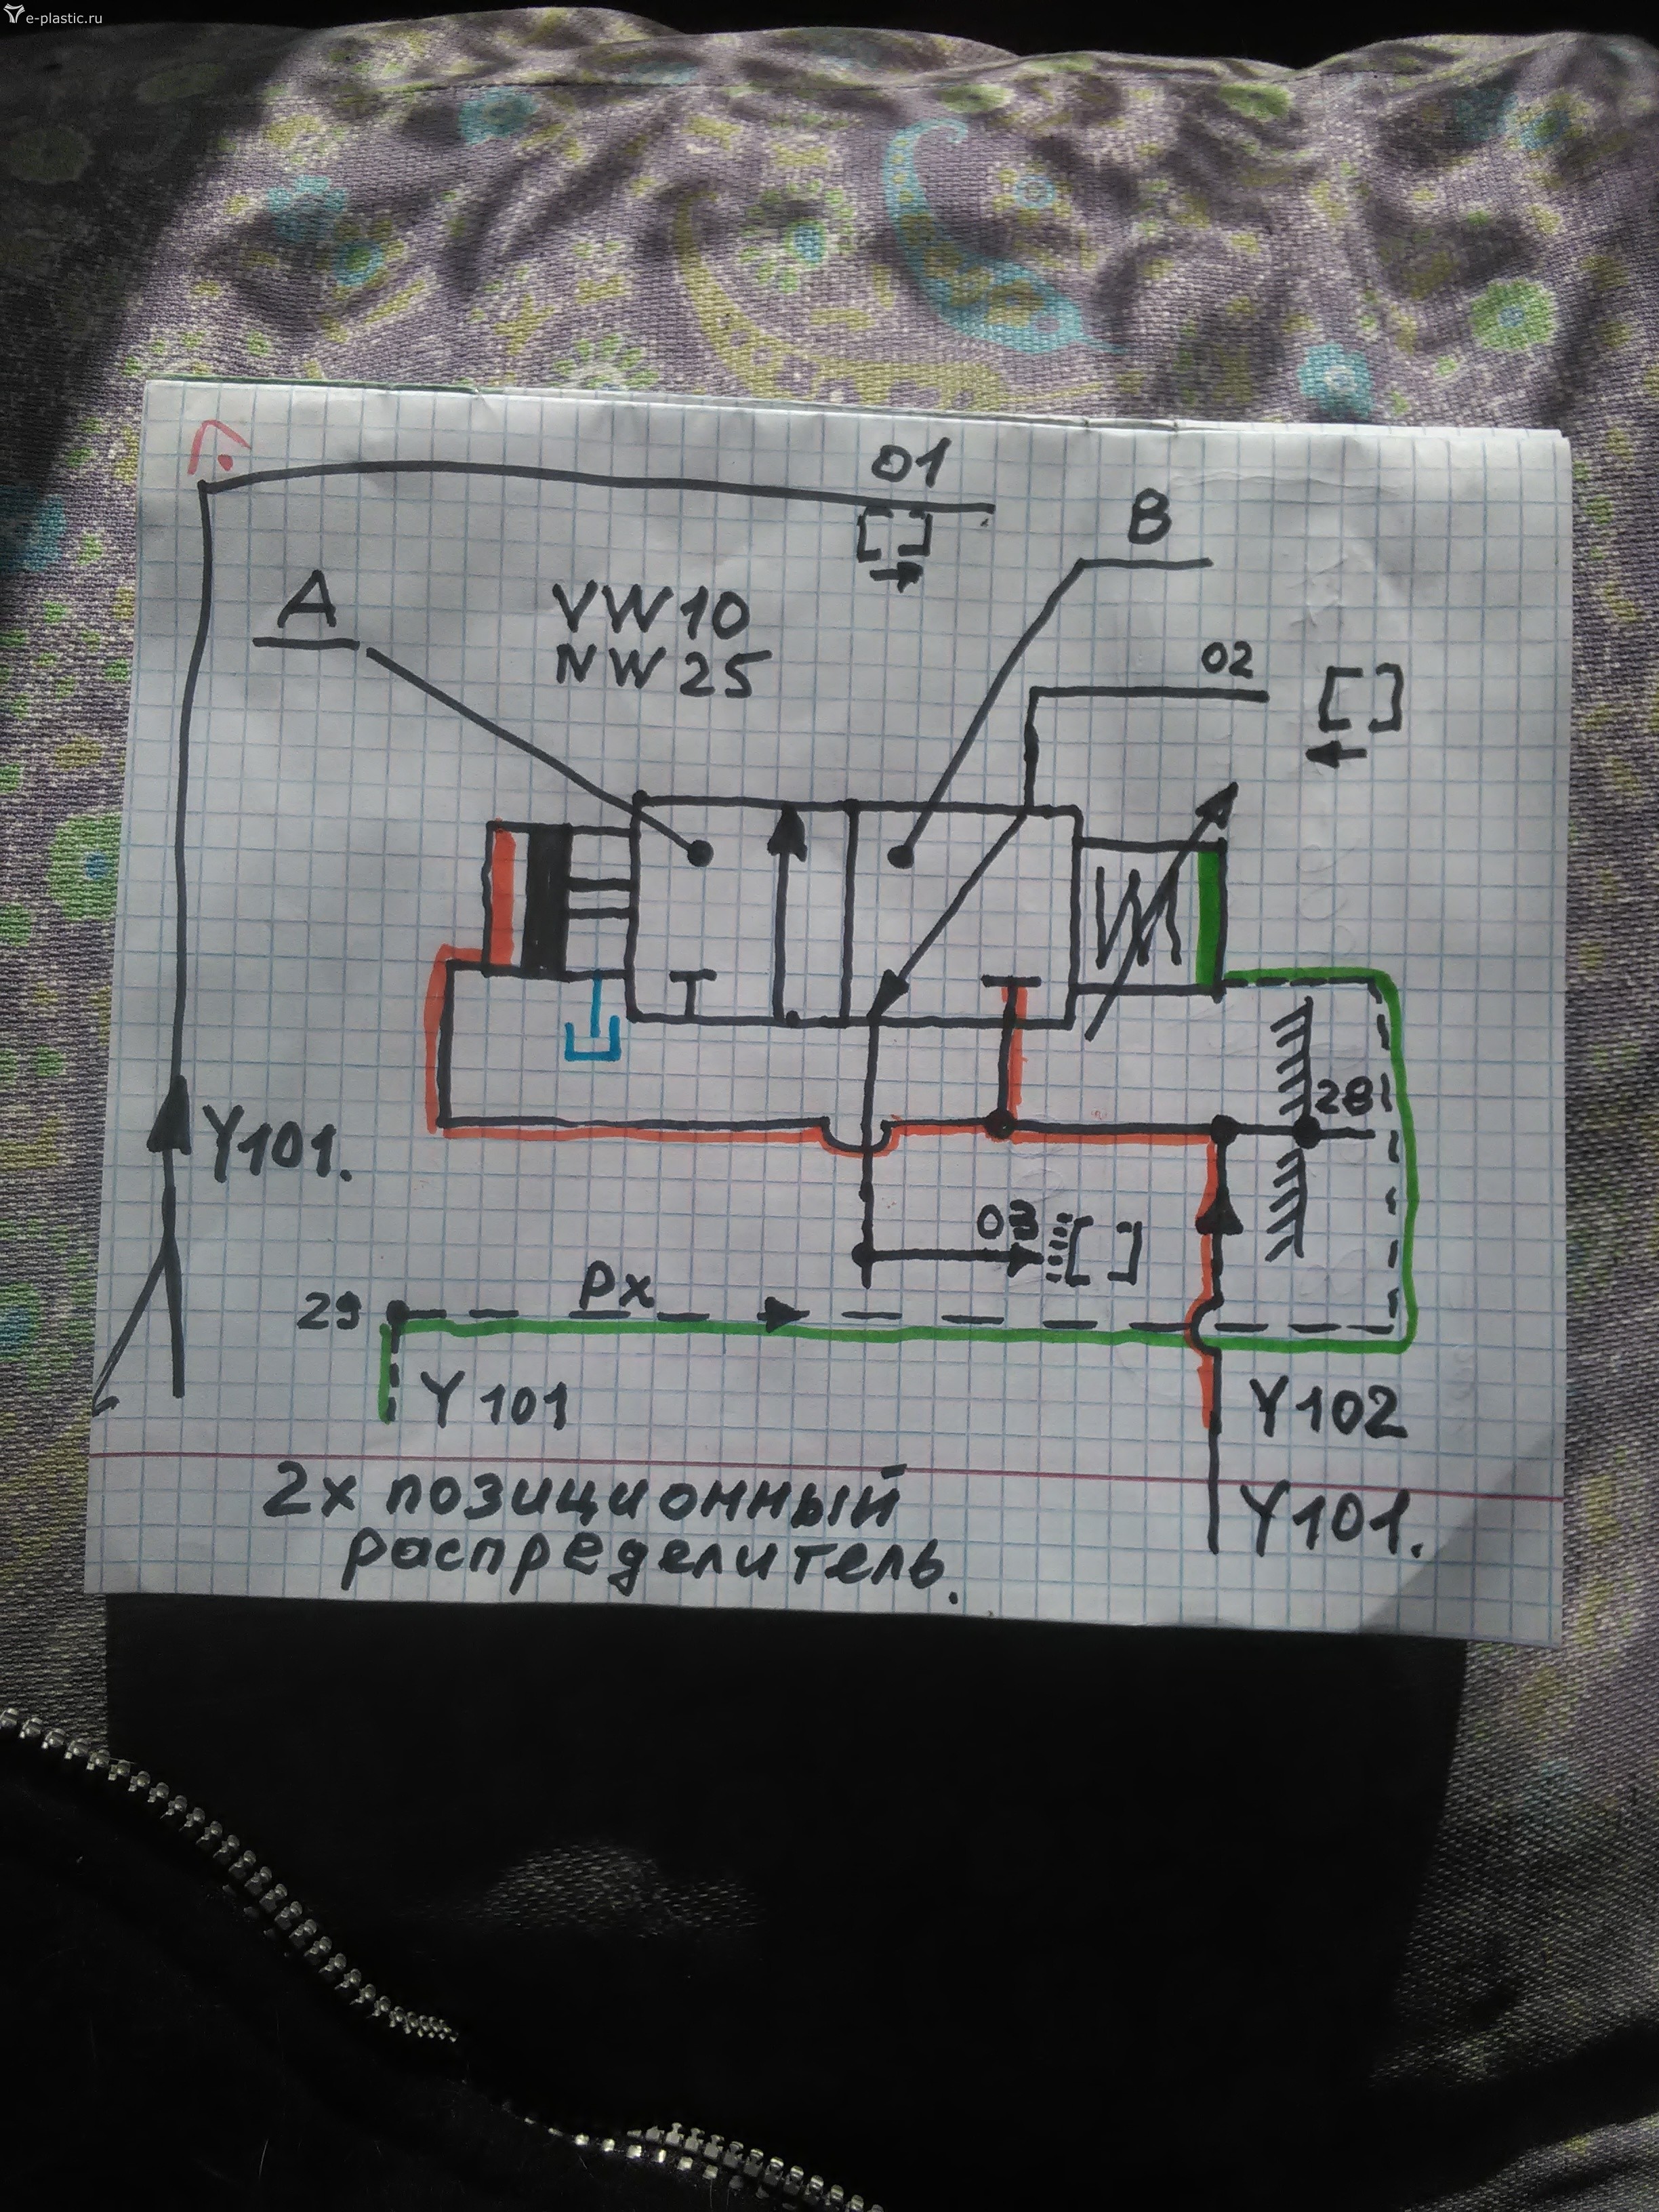 e-plastic.ru
01
B
A
VW10
NW25
02
Y101.
28
03
Px
29
Y101
Y102
Y101.
2х позиционный
распределитель.